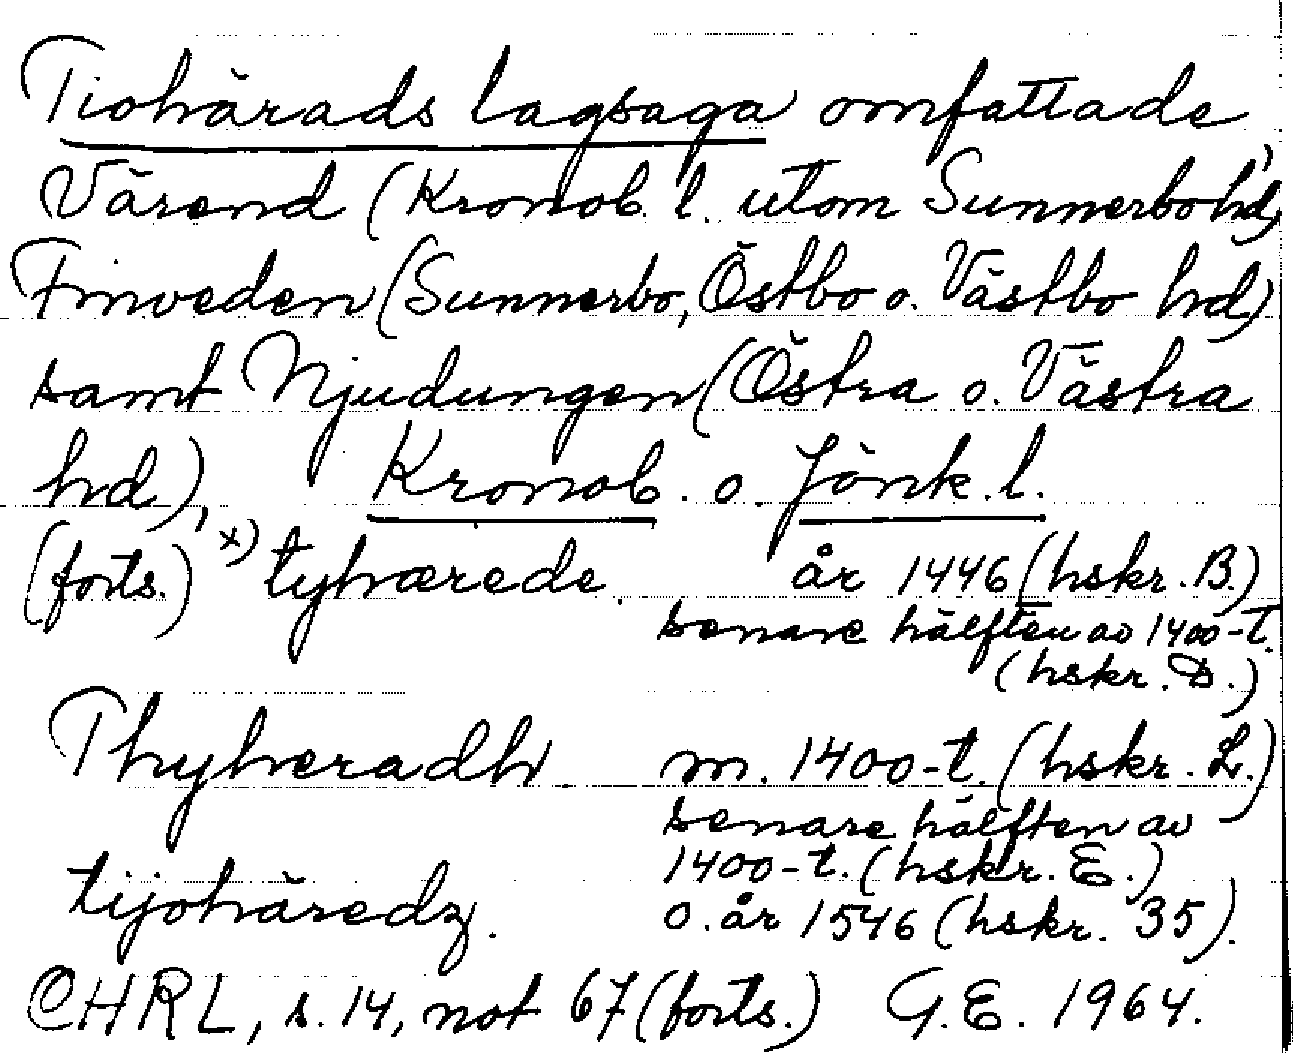 Tiohärads lagsaga omfattade
Värend (Kronob. l. utom Sunnerbo hd),
Finveden (Sunnerbo, Östbo o. Västbo hd)
samt Njudungen (Östra o. Västra
hd), Kronob. o. Jönk. l.
(forts.) x) tyhærede. år 1446 (hskr. B.)
senare hälften av 1400-t.
(hskr. D.)
Thyheradh m. 1400-t. (hskr. L.)
senare hälften av
1400-t. (hskr. E.)
tijohäredz. o. år 1546 (hskr. 35).
CHRL, s. 14, not 67 (forts.) G.E. 1964.